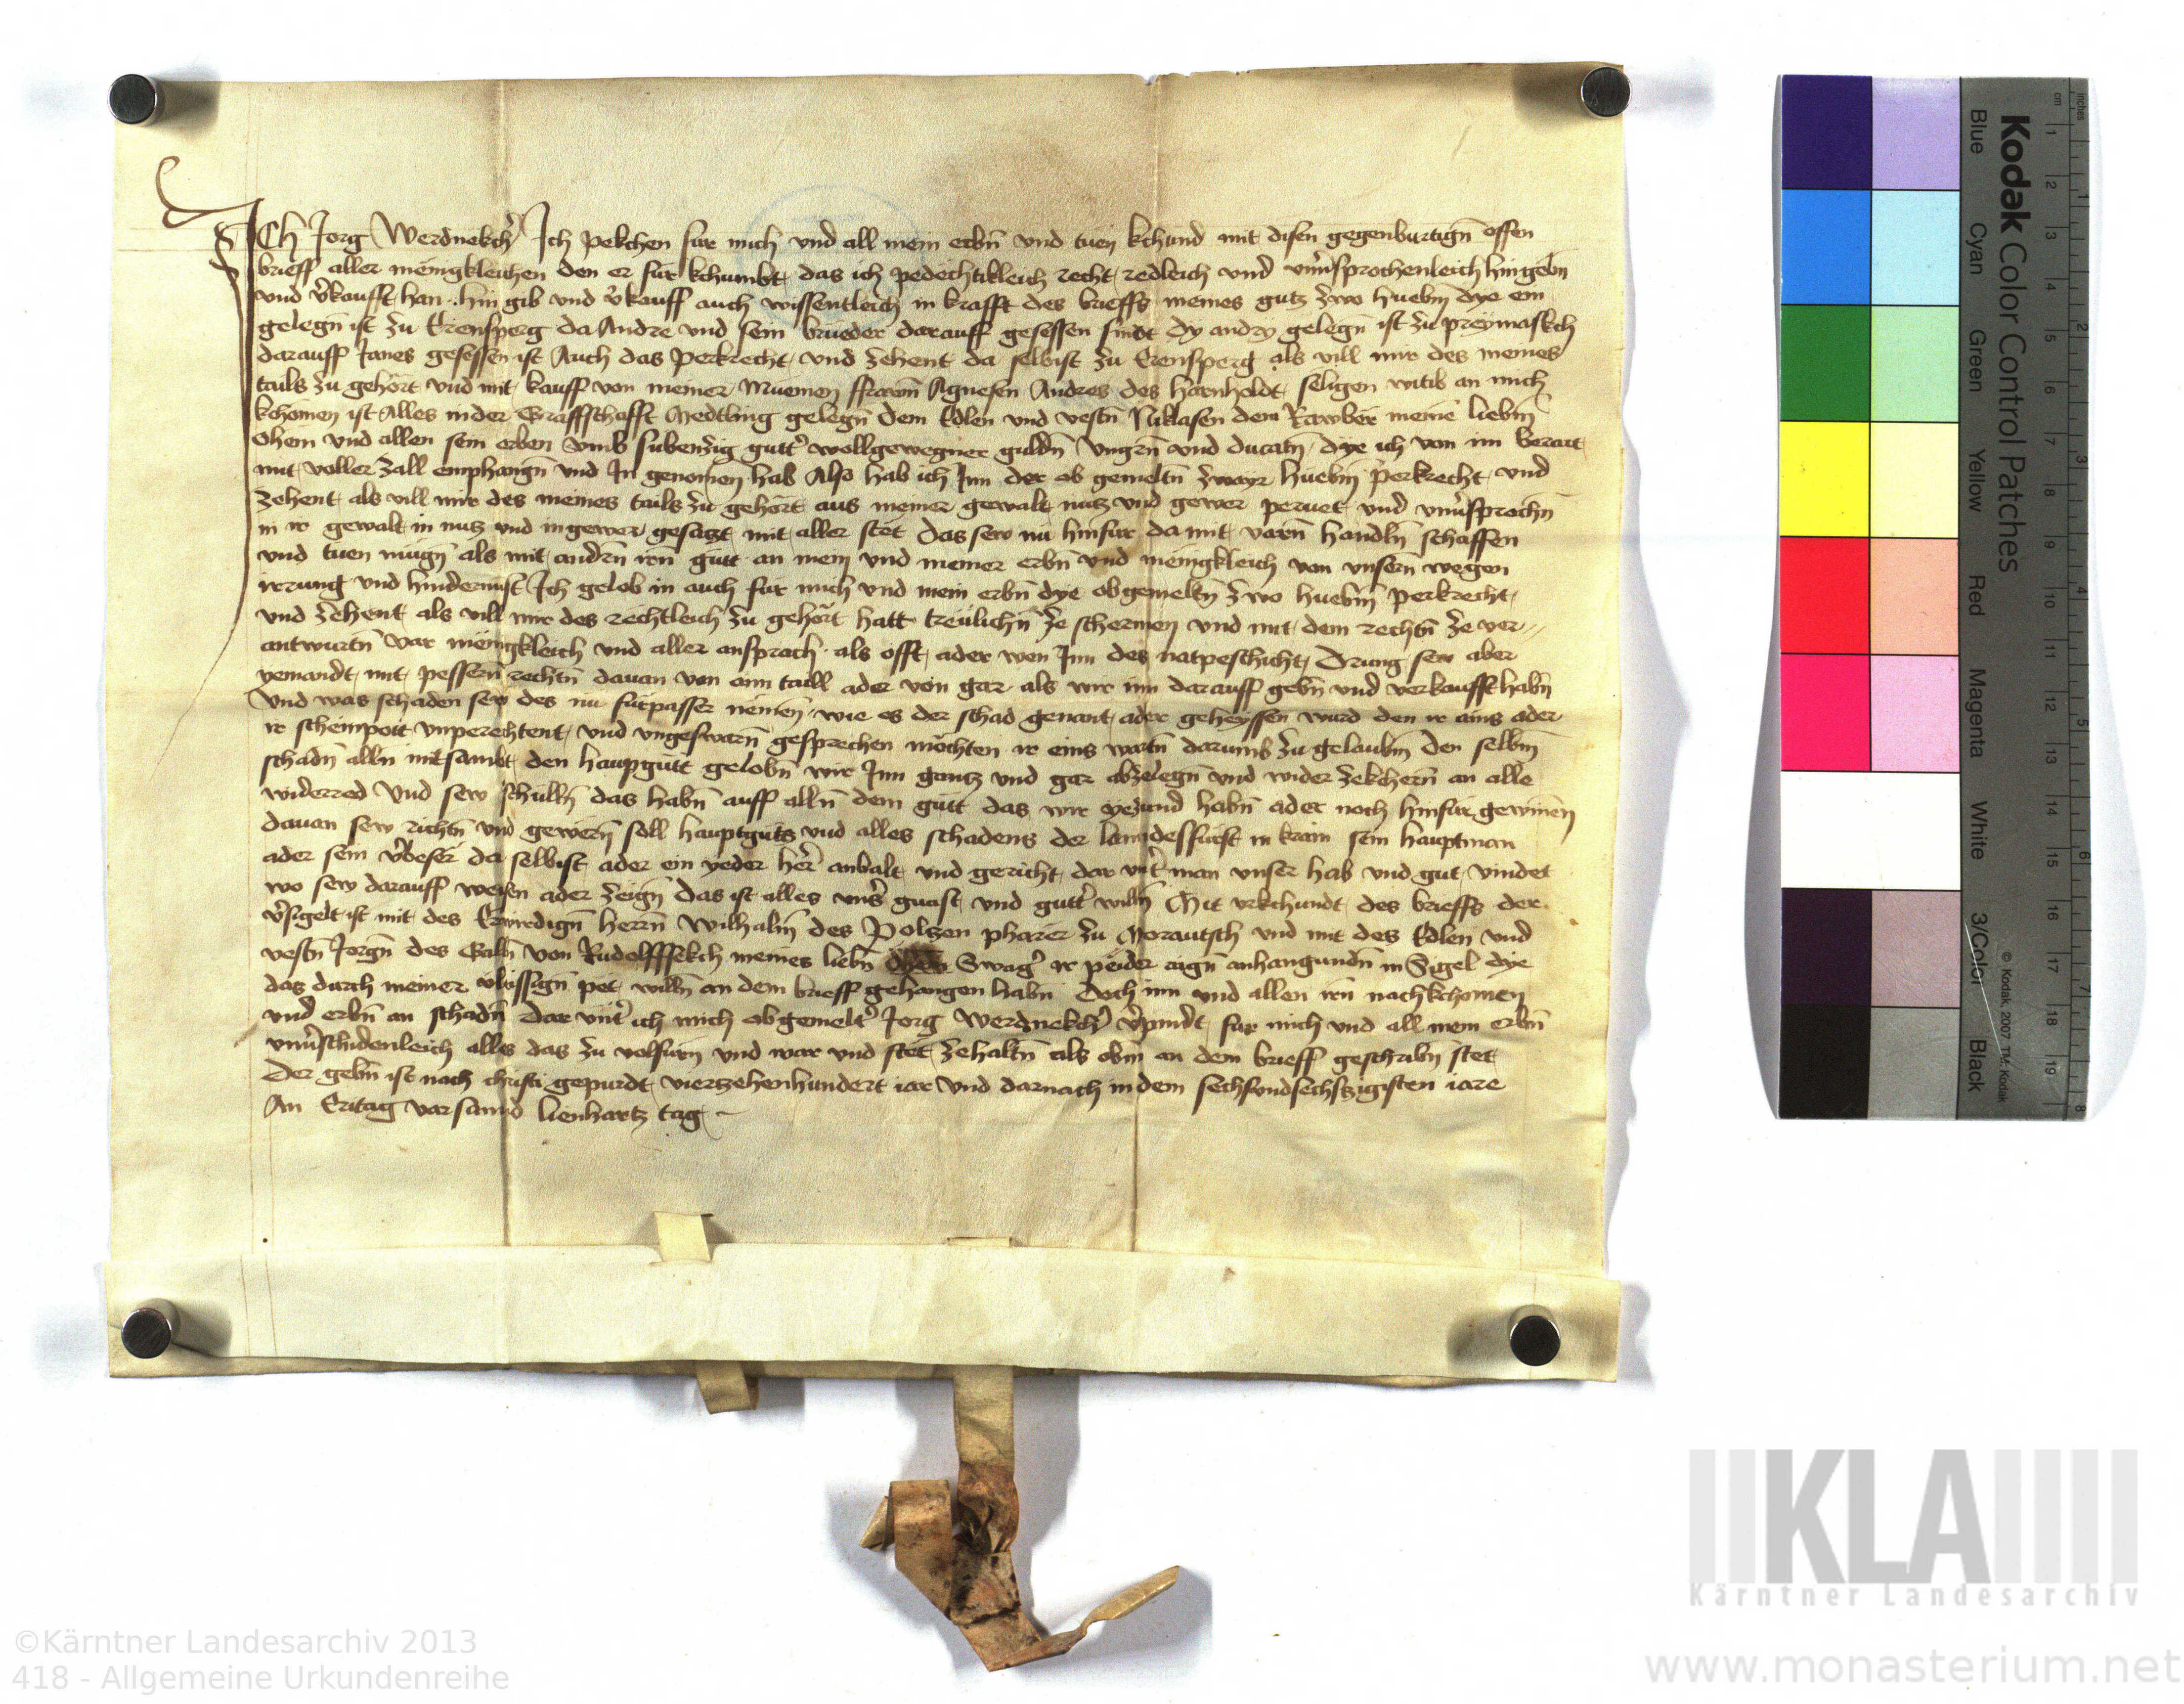 ICh Jorg Werdnekch̉ Ich pekchen fur mich vnd all mein erbn̄ vnd tuen kchund mit disen gegenburtign̄ offen
brieff aller menigkleichen den er fur kchumbt das ich pedechtikleich recht redleich vnd vnu̓sprochenleich hingebn̄
vnd v̓kaufft han hin gib vnd v̓kauff auch wissentleich in krafft des brieffs meines gutz zwo huebm̄ dye ein
gelegn̄ ist zu Erensperg da Andre vnd sein brueder darauff gesessen sindt dy andry gelegn̄ ist zu preymaskch
darauff Janes gesessen ist Auch das perkrecht vnd zehent da selbist zu Erensperg als vill mir des meines
tails zu gehört vnd mit kauff von meiner Muemen ffrawn̄ Agnesen Andres des hornholdt seligen witib an mich
kchomen ist Alles in der Graffschafft Medtling gelegn̄ dem Edlen vnd vestn̄ Niklasen dem Rawber meinē liebm̄
ohem vnd allen sein erben vmb subenzig gutt̓ wollgewegner guldn̄ vngrn̄ vnd ducatn̄ dye ich von im berait
mit voller zall emphangn̄ vnd In genomen hab Also hab ich Inn der ob gemeltn̄ zwayr huebm̄ perkrecht vnd
zehent als vill mir des meines tails zu gehört aus meiner gewalt nutz vnd gewer peruet vnd vnu̓sprochn̄
in ir gewalt in nutz vnd in gewer gesatzt mit aller stet das sew nu hinfur da mit varn̄ handln̄ schaffen
vnd tuen mugn̄ als mit andrn̄ irn̄ gutt an mein vnd meiner erbn̄ vnd menigkleich von vnsern̄ wegen
irrung vnd hindernust Ich gelob in auch fur mich vnd mein erbn̄ dye obgemeltn̄ zwo huebm̄ perkrecht
vnd zehent als vill mir des rechtleich zu gehört hatt treulichn̄ ze schermen vnd mit dem rechtn̄ ze ver//
antwurtn̄ vor menigkleich vnd aller ansprach als offt ader wen Inn des natpeschicht Drung sew aber
yemandt mit pessern̄ rechtn̄ dauan von aim taill ader von gar als wir inn darauff gebn̄ vnd verkaufft habn̄
Vnd was schaden sew des nu furpasser nemen wie es der schad genant ader geheyssen wurd den ir ains ader
ir scheinpott vnperechtent vnd vngeswarn̄ gesprechen möchten ir eins wortn̄ darumb zu gelaubm̄ den selbm̄
schadn̄ alln̄ mitsambt den haupgutt gelobn̄ wir Inn gantz vnd gar abzelegn̄ vnd wider zekchern̄ an alle
widerred Vnd sew schulln̄ das habn̄ auff alln̄ dem gutt das wir yezund habn̄ ader noch hinfur gewinen
dauan sew richtn̄ vnd gewern̄ soll hauptguts vnd alles schadens der lanndesfurst in krain sein hauptman
ader sein v̓beser da selbist ader ein yeder her̓ anbalt vnd gericht dar vnt̓ man vnser hab vnd gut vindet
wo sew darauff weisen ader zeign̄ Das ist alles vns̓ gunst vnd gutt̓ willn̄ Mit vrkchundt des brieffs der
v̓sigelt ist mit des Erwirdign̄ herrn̄ Wilhalm̄ des Polszen pharer zu Morautsch vnd mit des Edlen vnd
vestn̄ Jorgn̄ des Galln̄ von Rudolffsekch meines liebn̄ Swag̓ ir peider aign̄ anhangundn̄ in Sigel dye
das durch meiner vleissign̄ pet willn̄ an dem brieff gehangen habn̄ Doch inn vnd allen irn̄ nachkchomen
vnd erbn̄ an schadn̄ Dar vnt̓ ich mich obgemelt̓ Jorg Werdnekch̉ v̓pindt fur mich vnd all mein erbn̄
vnu̓schidenleich alles das zu volfurn̄ vnd war vnd stet zehaltn̄ als obm̄ an dem brieff geschribn̄ stet
Der gebn̄ ist nach christi gepurdt vierzehenhundert iar vnd darnach in dem sechsvndsechszigisten iare
An Eritag vor sannd lienhartz tag
Kodak Color Control Patches
Blue Cyan Green Yellow Red Magenta White 3/Color Black
© Kodak, 2007 TM: Kodak
cm 1 2 3 4 5 6 7 8 9 10 11 12 13 14 15 16 17 18 19
inches 1 2 3 4 5 6 7 8
KLA
Kärntner Landesarchiv
©Kärntner Landesarchiv 2013
418 - Allgemeine Urkundenreihe
www.monasterium.net